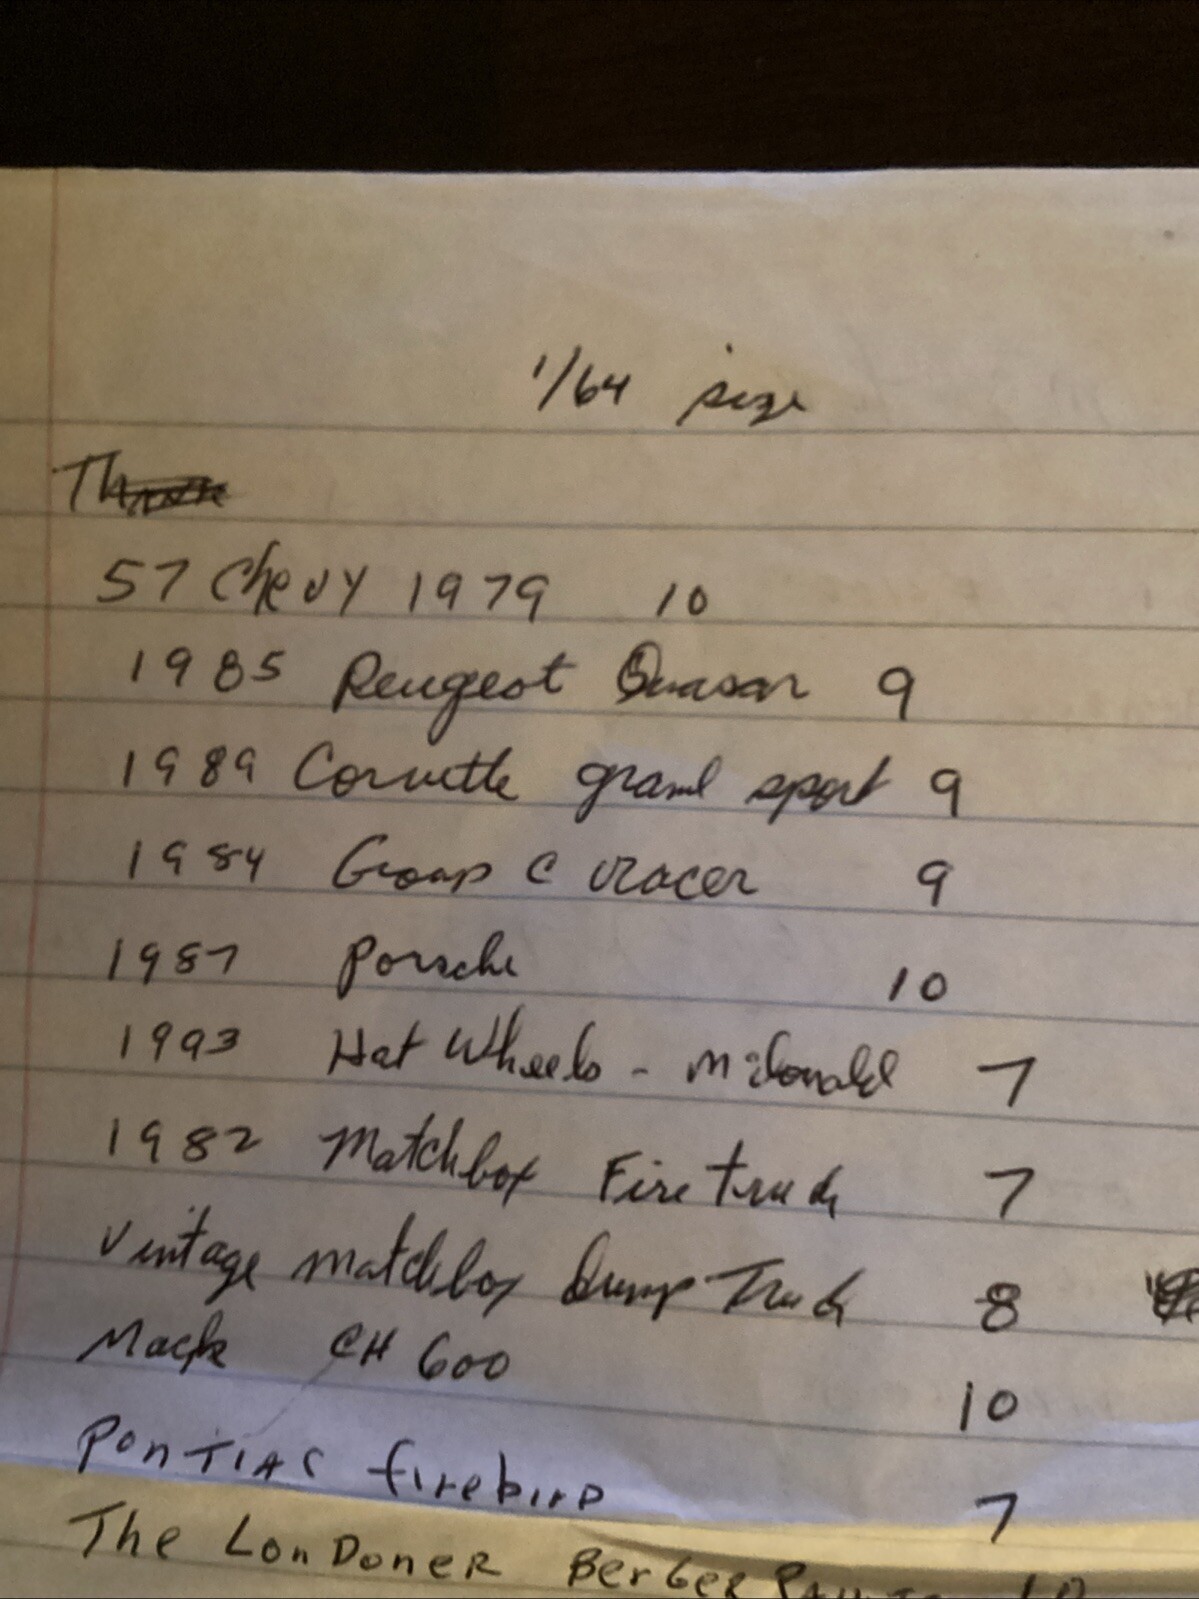 1/64 size
57 Chevy 1979 10
1985 Peugeot Quasar 9
1989 Corvette grand sport 9
1984 Group C racer 9
1987 Porsche 10
1993 Hot Wheels - McDonald 7
1982 Matchbox Fire truck 7
Vintage matchbox Dump Truck 8
Mack CH 600
10
Pontiac firebird
7
The Londoner Berger 10